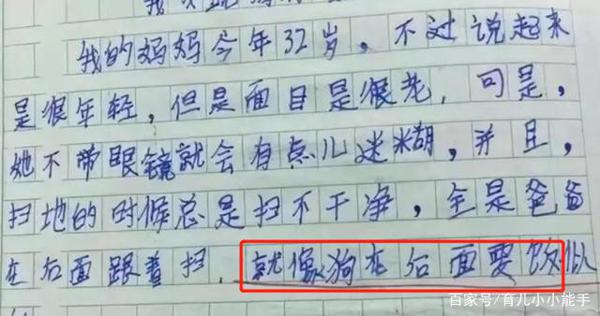 我的妈妈今年32岁，不过说起来
是很年轻，但是面目是很老，可是，
她不带眼镜就会有点儿迷糊，并且，
扫地的时候总是扫不干净，全是爸爸
在后面跟着扫，就像狗在后面要饭似
百家号/育儿小小能手